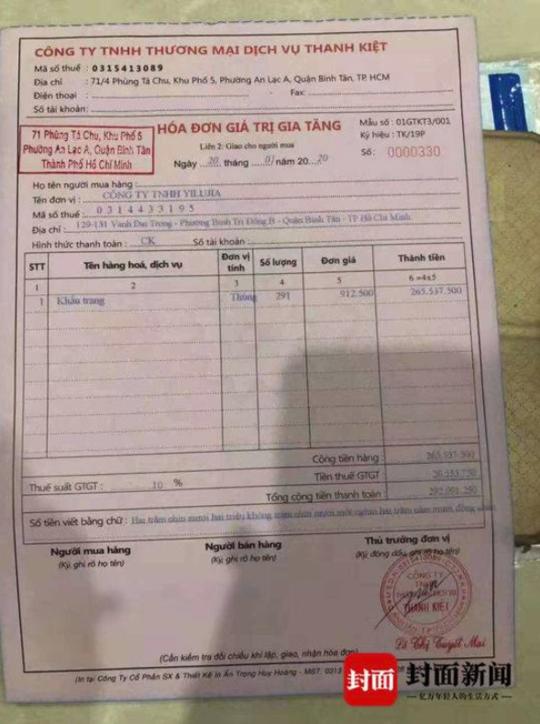 CÔNG TY TNHH THƯƠNG MẠI DỊCH VỤ THANH KIỆT
Mã số thuế : 0315413089
Địa chỉ : 71/4 Phùng Tá Chu, Khu Phố 5, Phường An Lạc A, Quận Bình Tân, TP, HCM
Điện thoại : Fax:
Số tài khoản:
71 Phùng Tá Chu, Khu Phố 5
Phường An Lạc A, Quận Bình Tân
Thành Phố Hồ Chí Minh
HÓA ĐƠN GIÁ TRỊ GIA TĂNG
Liên 2: Giao cho người mua
Ngày 20 tháng 01 năm 20 20
Mẫu số : 01GTKT3/001
Ký hiệu : TK/19P
Số: 0000330
Họ tên người mua hàng :
Tên đơn vị : CÔNG TY TNHH YILUJIA
Mã số thuế : 0314433195
Địa chỉ : 129-131 Vành Đai Trong - Phường Bình Trị Đông B - Quận Bình Tân - TP Hồ Chí Minh
Hình thức thanh toán : CK Số tài khoản :
STT Tên hàng hoá, dịch vụ Đơn vị tính Số lượng Đơn giá Thành tiền
1 2 3 4 5 6 =4x5
1 Khẩu trang Thùng 291 912.500 265.537.500
Cộng tiền hàng : 265.537.500
Thuế suất GTGT : 10 % Tiền thuế GTGT :
Tổng cộng tiền thanh toán :
Số tiền viết bằng chữ : Hai trăm chín mươi hai triệu không trăm chín mươi mốt ngàn hai trăm năm mươi đồng
Người mua hàng Người bán hàng Thủ trưởng đơn vị
(Ký, ghi rõ họ tên) (Ký, ghi rõ họ tên) (Ký, đóng dấu, ghi rõ họ tên)
CÔNG TY
TNHH
THANH KIỆT
Lê Thị Tuyết Mai
(Cần kiểm tra đối chiếu khi lập, giao, nhận hóa đơn)
(In tại Công Ty Cổ Phần SX & Thiết Kế In Ấn Trọng Huy Hoàng - MST. 0313
封面 封面新闻
亿万年轻人的生活方式